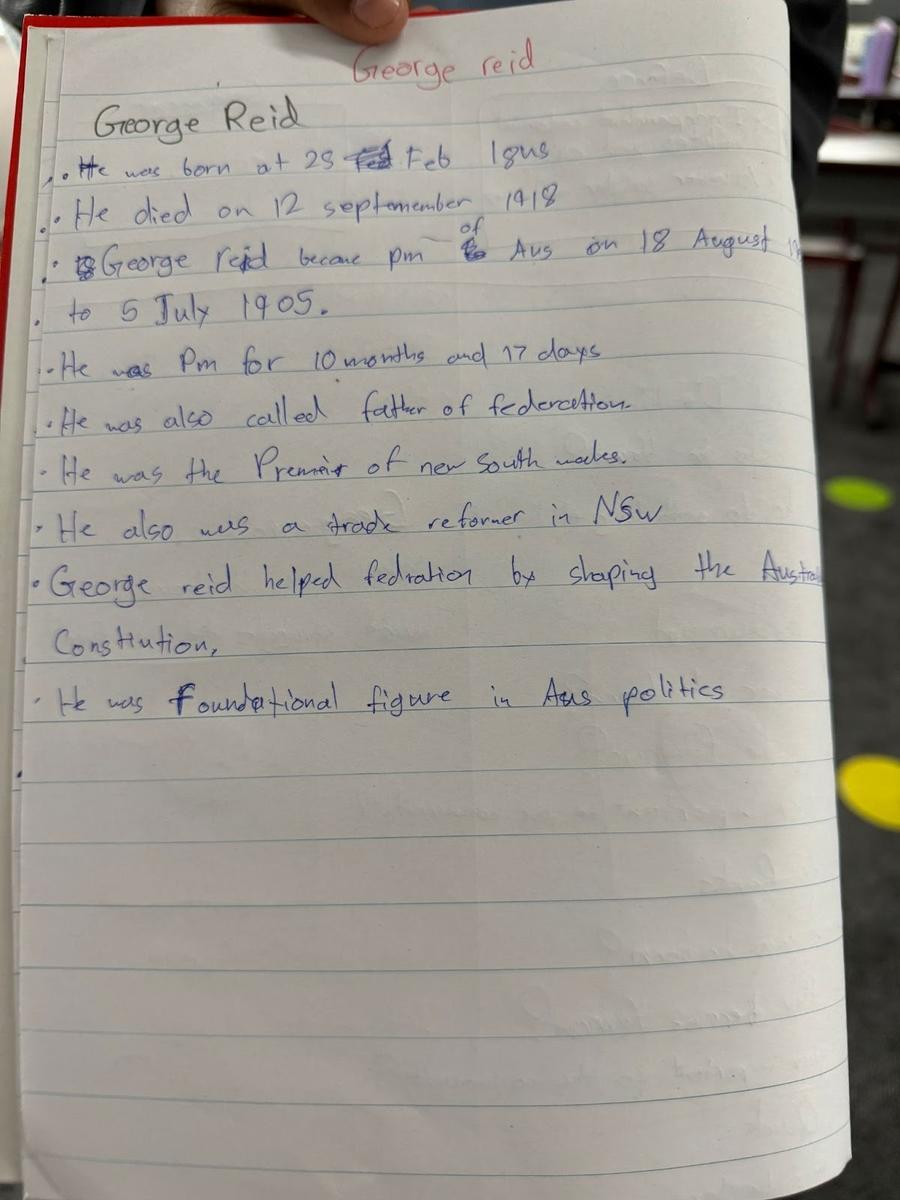 George reid
George Reid
. He was born at 25 Feb 1845
. He died on 12 septemember 1918
. George Reid became pm of Aus on 18 August
to 5 July 1905.
. He was Pm for 10 months and 17 days
. He was also called father of federation.
. He was the Premier of new South wales.
. He also was a trade reformer in NSW
. George reid helped fedration by shaping the
Constitution,
. He was foundational figure in Aus politics